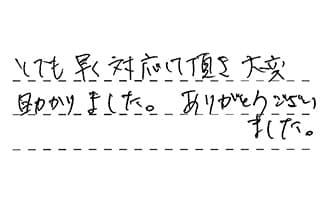 とても早く対応して頂き大変
助かりました。ありがとうござい
ました。